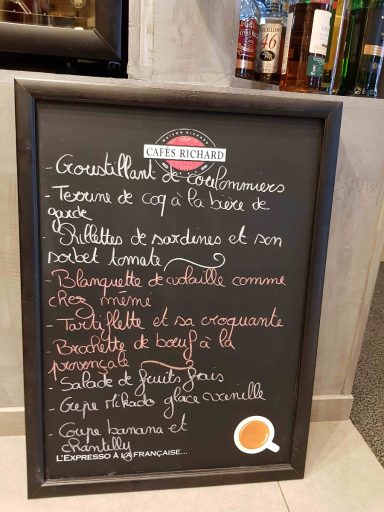 MAISON RICHARD
CAFÉS RICHARD
- Croustillant de coulommiers
- Terrine de coq à la bière de
garde
- Rillettes de sardines et son
sorbet tomate
- Blanquette de volaille comme
chez mémé
- Tartiflette et sa croquante
- Brochette de bœuf à la
provençale
- Salade de fruits frais
- Crêpe Mikado glace vanille
- Coupe banana et
chantilly
L'EXPRESSO À LA FRANÇAISE...
46